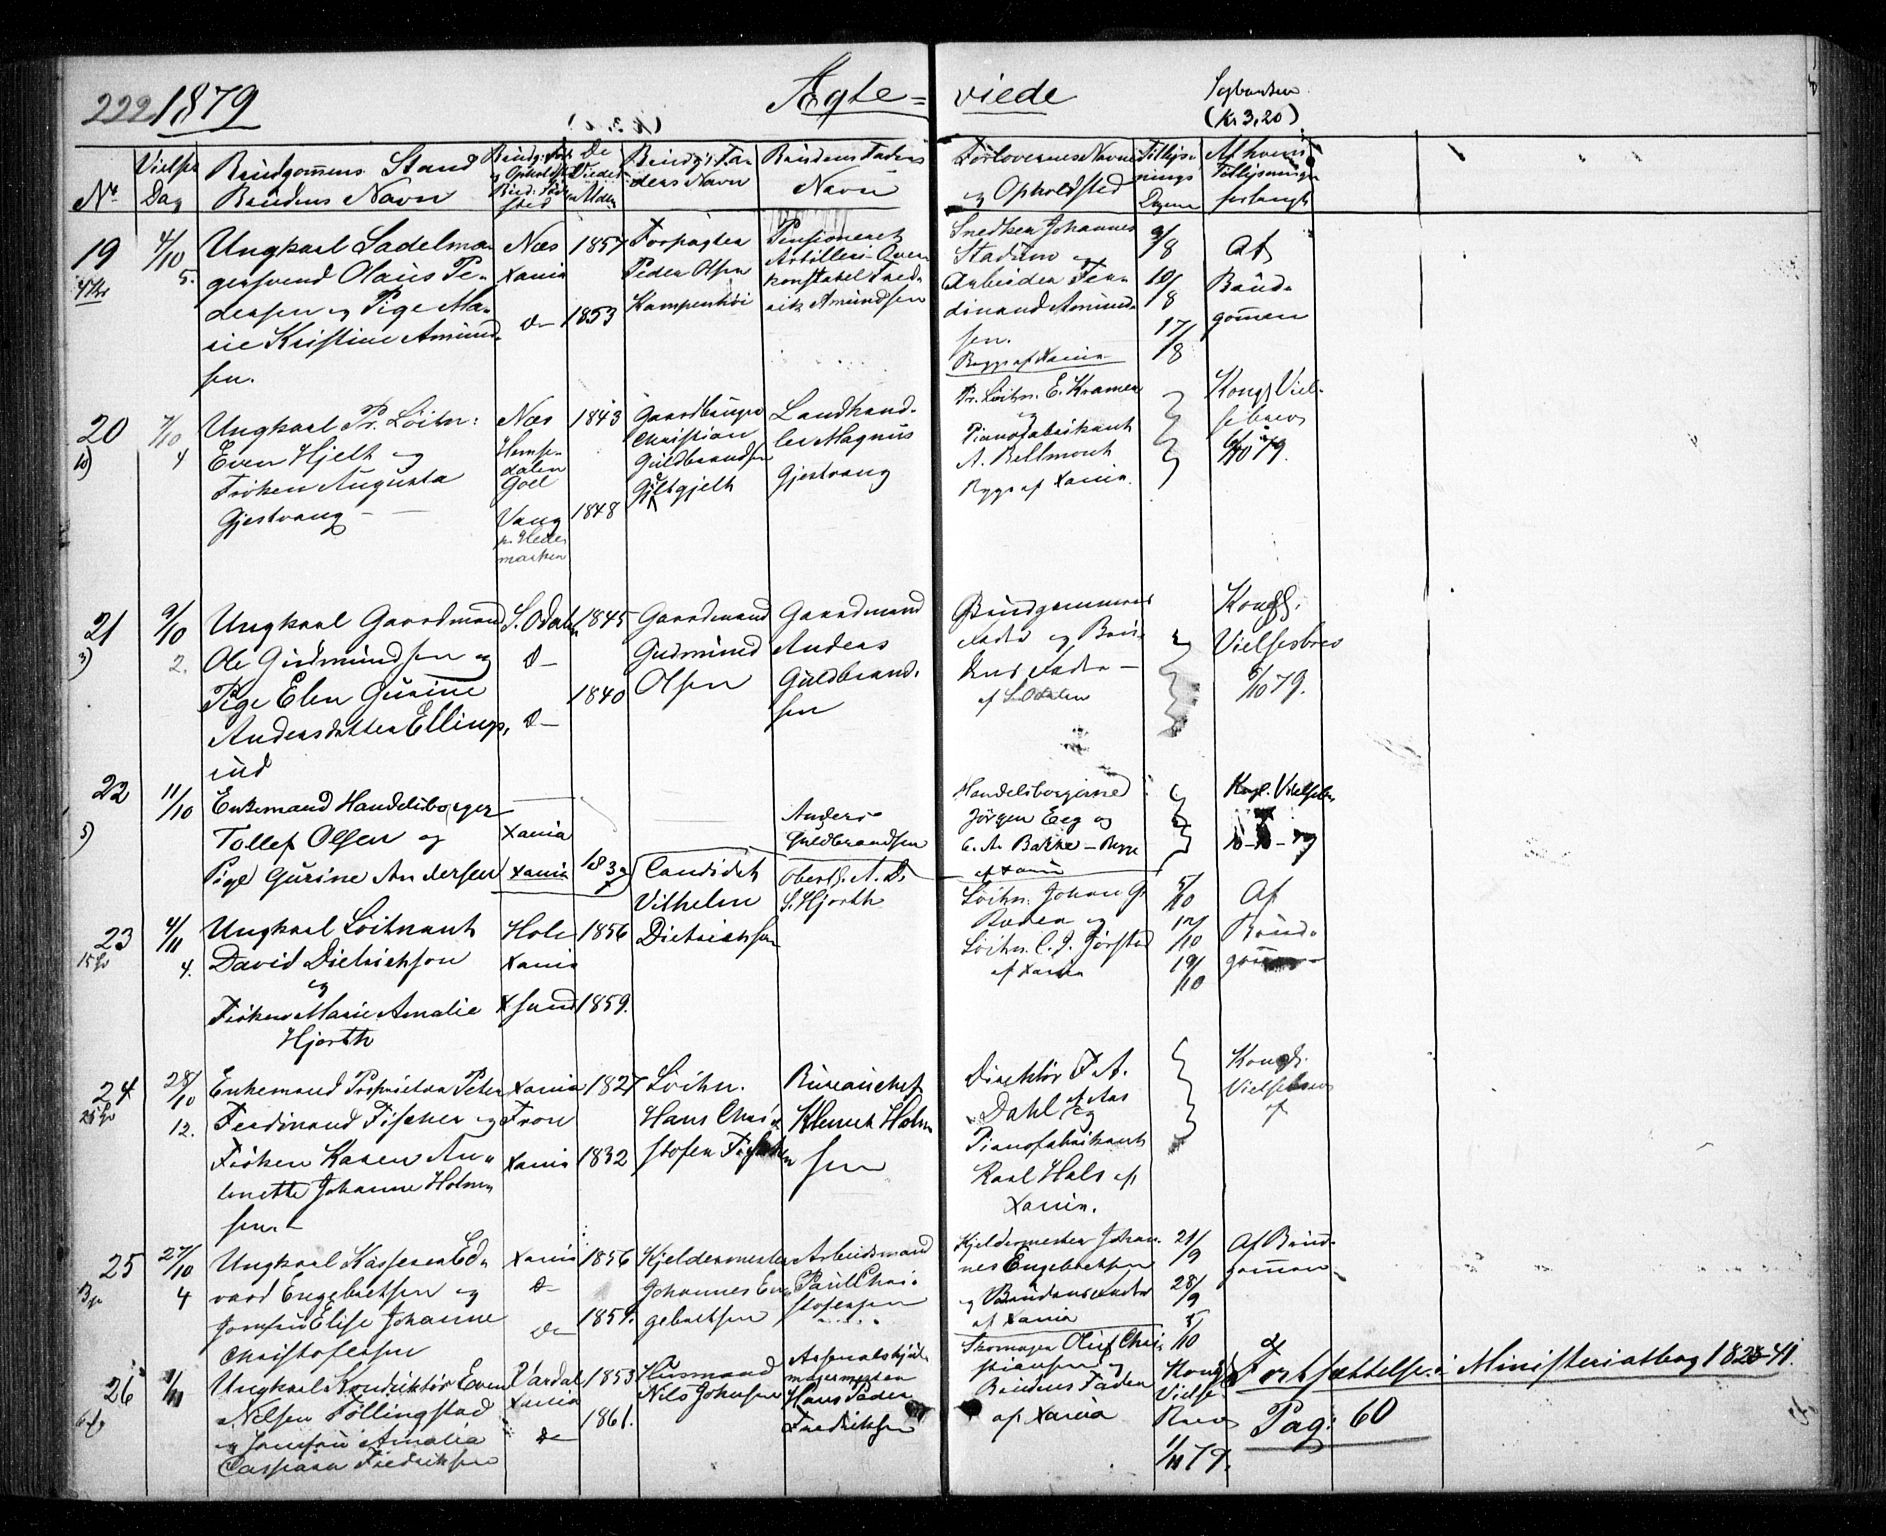 222 1879 Ægte= viede
(kr 3,20)
No
Vielses Dag
Brudgommens Stand
Brudens Navn
De Viedes Alder
Brudg's Faders Navn
Brudens Faders Navn
Forlovernes Navne og Opholdsted
Tillysnings Dagene
Af hvem Tillysningen forlangt
19
4/10
5.
Ungkarl Sadelma-
gersvend Olaus Pe-
dersen og Pige Ma-
rie Kristine Amund-
sen.
Næs
Xania
Do
1857
1853
Forpagter
Peder Olsen
Kampenhøi
Pensioneret
Artilleri Over
konstabel Fred-
rik Amundsen
Snedker Johannes
Stadum og
Arbeider Fer-
dinand Amund-
sen.
Begge af Xania
3/8
10/8
17/8
Af
Brud-
gommen
20
7/10
4
Ungkarl Pr. Løitn:
Even Hjelt og
Frøken Augusta
Gjestvang
Næs
Hemse-
dalen
Goel
Vang
p. Hede-
marken
1843
1848
Gaardbruger
Christian
Guldbrandsen
Landhand-
ler Magnus
Gjestvang
Pr. Løitn. E. Kramer
og
Pianofabrikant
A. Bellmont
Begge af Xania.
Kongl Viel-
sebrev
6/10 79.
21
3)
9/10
2.
Ungkarl Gaardmand
Ole Gudmundsen og
Pige Elen Gurine
Andersdatter Ellings,
rud
S. Odalen
D-
D-
1845
1840
Gaardmand
Gudmund
Olsen
Gaardmand
Anders
Guldbrand-
sen
Brudgommens
Fader og Bru-
dens Fader
af S. Odalen
Kongl.
Vielsesbrev
8/10 79.
22
5)
11/10
Enkemand Handelsborger
Tollef Olsen og
Pige Gurine Andersen
Xania
Xania
1839
Anders
Guldbrandsen
Handelsborgerne
Jørgen Eeg og
C. A. Bakke - Begge
af Xania
Kngl. Vielsebr
10-10-79
23
4/11
4.
Ungkarl Løitnant
David Dietrichson
og
Frøken Marie Amalie
Hjorth
Hole
Xania
Xsund
1856
1859.
Candidat
Vilhelm
Dietrichson
Oberstl. A. D.
S. Hjorth
Løitn. Johan G.
Ræder og
Løitn. C. J. Gjørstad
af Xania
5/10
12/10
19/10
Af
Brud-
24
28/10
12.
Enkemand Proprietær Peter
Ferdinand Fischer og
Frøken Karen An-
tonette Johanne Holm-
sen.
Xania
Fron
Xania
1827
1832
Løitn.
Hans Chri-
stofer Fischer
Bureauchef
Klemet Holm
sen
Direktør F. A.
Dahl af Aas
og
Pianofabrikant
Karl Hals af
Xania.
Kongl.
Vielsebrev
af
25
27/10
4
Ungkarl Kasperer Ed-
vard Engebretsen og
Jomfru Elise Johanne
Christofersen
Xania
D-
Do
1856
1859.
Kjeldermester
Johannes En-
gebretsen
Arbeidsmand
Paul Chri-
stofersen
Kjeldermester Johan-
nes Engebretsen
og Brudens Fader
af Xania
21/9
28/9
5/10
Af Brud-
gommen
26
1/11
Ungkarl Konduktør Even
Nilsen Føllingstad
og Jomfru Amalia
Caspara Fredriksen
Vardal
Xania
Do
1853
1861.
Husmand
Nils Johnsen
Hans Peder
Fredriksen
Skomager Oluf Chri-
stiansen og
Brudens Fader
af Xania
Kongl
Vielse
Brev
1/11 79.
Fortsættelse i Ministerialbog 1823-41.
Pag: 60